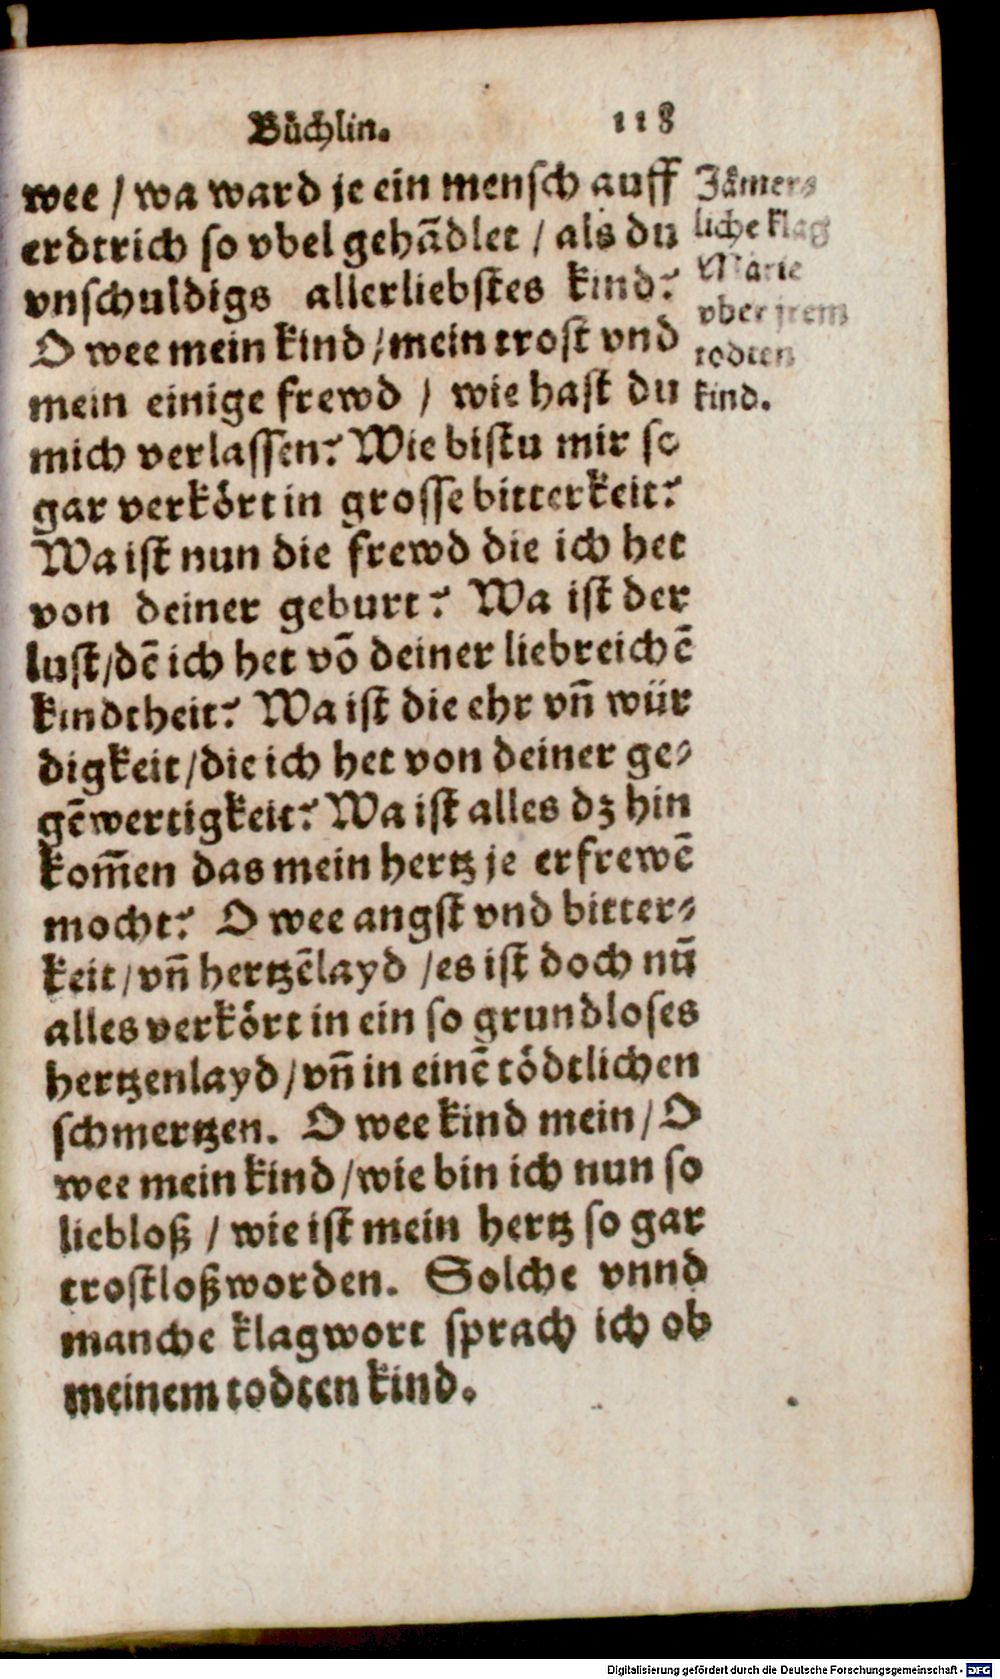 Büchlin. 118
wee / wa ward je ein mensch auff
erdtrich so vbel gehãdlet / als du
vnschuldigs allerliebstes kind?
O wee mein kind / mein trost vnd
mein einige frewd / wie hast du
mich verlassen? Wie bistu mir so
gar verkört in grosse bitterkeit?
Wa ist nun die frewd die ich het
von deiner geburt? Wa ist der
lust / dẽ ich het võ deiner liebreichẽ
kindtheit? Wa ist die ehr vñ wür
digkeit / die ich het von deiner ge-
gẽwertigkeit? Wa ist alles dz hin
kom̃en das mein hertz je erfrewẽ
mocht? O wee angst vnd bitter-
keit / vñ hertzẽlayd / es ist doch nũ
alles verkört in ein so grundloses
hertzenlayd / vñ in einẽ tödtlichen
schmertzen. O wee kind mein / O
wee mein kind / wie bin ich nun so
liebloß / wie ist mein hertz so gar
trostloß worden. Solche vnnd
manche klagwort sprach ich ob
meinem todten kind.
Jämer-
liche klag
Marie
vber jrem
todten
kind.
Digitalisierung gefördert durch die Deutsche Forschungsgemeinschaft - DFG